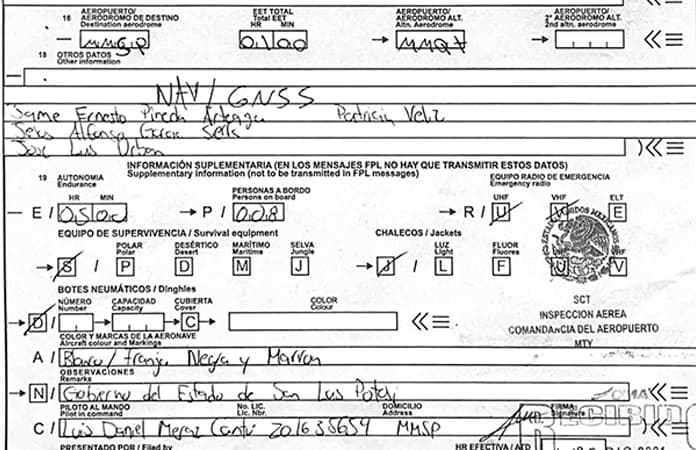 16 AEROPUERTO/ AERÓDROMO DE DESTINO Destination aerodrome
EET TOTAL Total EET
HR MIN
AEROPUERTO/ AERÓDROMO ALT. Altn. Aerodrome
AEROPUERTO/ 2º AERÓDROMO ALT. 2nd altn. aerodrome
MMSP 0100 MMQT
18 OTROS DATOS
Other information
NAV/GNSS
Jaime Ernesto Pineda Arteaga Patricia Veliz
Jesus Alfonso Garcia
Jose Luis Urban )
INFORMACIÓN SUPLEMENTARIA (EN LOS MENSAJES FPL NO HAY QUE TRANSMITIR ESTOS DATOS)
Supplementary information (not to be transmitted in FPL messages)
19 AUTONOMIA
Endurance
HR MIN
PERSONAS A BORDO
Persons on board
EQUIPO RADIO DE EMERGENCIA
Emergency radio
UHF VHF ELT
E / 0500 P / 008 R / U V E
EQUIPO DE SUPERVIVENCIA / Survival equipment CHALECOS / Jackets
POLAR Polar DESÉRTICO Desert MARÍTIMO Maritime SELVA Jungla LUZ Light FLUOR Fluores UHF VHF
S / P D M J J / L F U V
BOTES NEUMÁTICOS / Dinghies
NÚMERO Number CAPACIDAD Capacity CUBIERTA Cover COLOR Colour
D / C
SCT
INSPECCION AEREA
COMANDANCIA DEL AEROPUERTO
MTY
COLOR Y MARCAS DE LA AERONAVE
Aircraft colour and Markings
A / Blanco/ Franja Negra y Marron
OBSERVACIONES
Remarks
N / Gobierno del Estado de San Luis Potosi
PILOTO AL MANDO Pilot in command No. LIC. Lic. Nbr. DOMICILIO Address FIRMA Signature
RECIBIDO
C / Luis Daniel 201635659 MMSP )
PRESENTADO POR / Filed by HR EFECTIVA / ATD